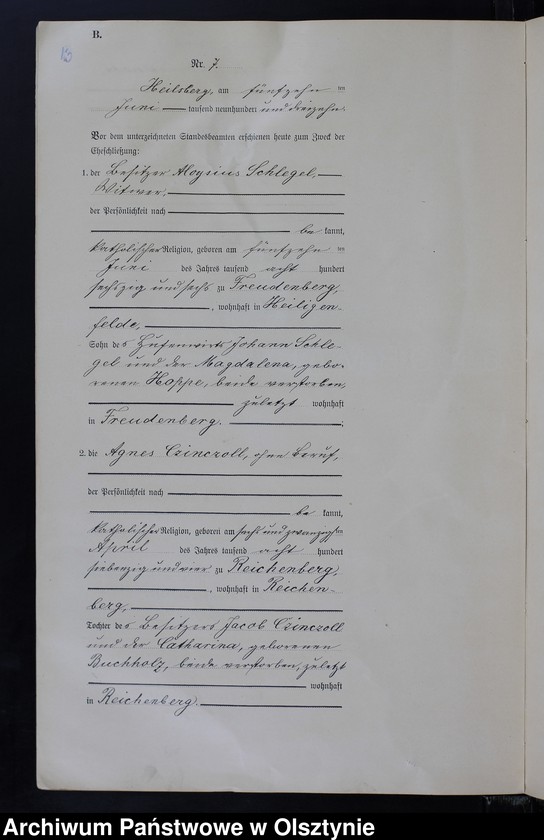 B.
13
Nr. 7.
Heilsberg, am fünfzehn ten
Juni tausend neunhundert und dreizehn.
Vor dem unterzeichneten Standesbeamten erschienen heute zum Zweck der
Eheschließung:
1. der Besitzer Aloysius Schlegel,
Witwer,
der Persönlichkeit nach
be kannt,
katholischer Religion, geboren am fünfzehn ten
Juni des Jahres tausend acht hundert
sechszig und sechs zu Freudenberg,
, wohnhaft in Heiligen-
felde,
Sohn des Hufenwirts Johann Schle-
gel und der Magdalena, gebo-
renen Hoppe, beide verstorben,
zuletzt wohnhaft
in Freudenberg. ;
2. die Agnes Czinczoll, ohne Beruf,
der Persönlichkeit nach
be kannt,
katholischer Religion, geboren am sechs und zwanzigsten
April des Jahres tausend acht hundert
siebenzig und vier zu Reichenberg,
, wohnhaft in Reichen-
berg,
Tochter des Besitzers Jacob Czinczoll
und der Catharina, geborenen
Buchholz, beide verstorben, zuletzt
wohnhaft
in Reichenberg.
Archiwum Państwowe w Olsztynie